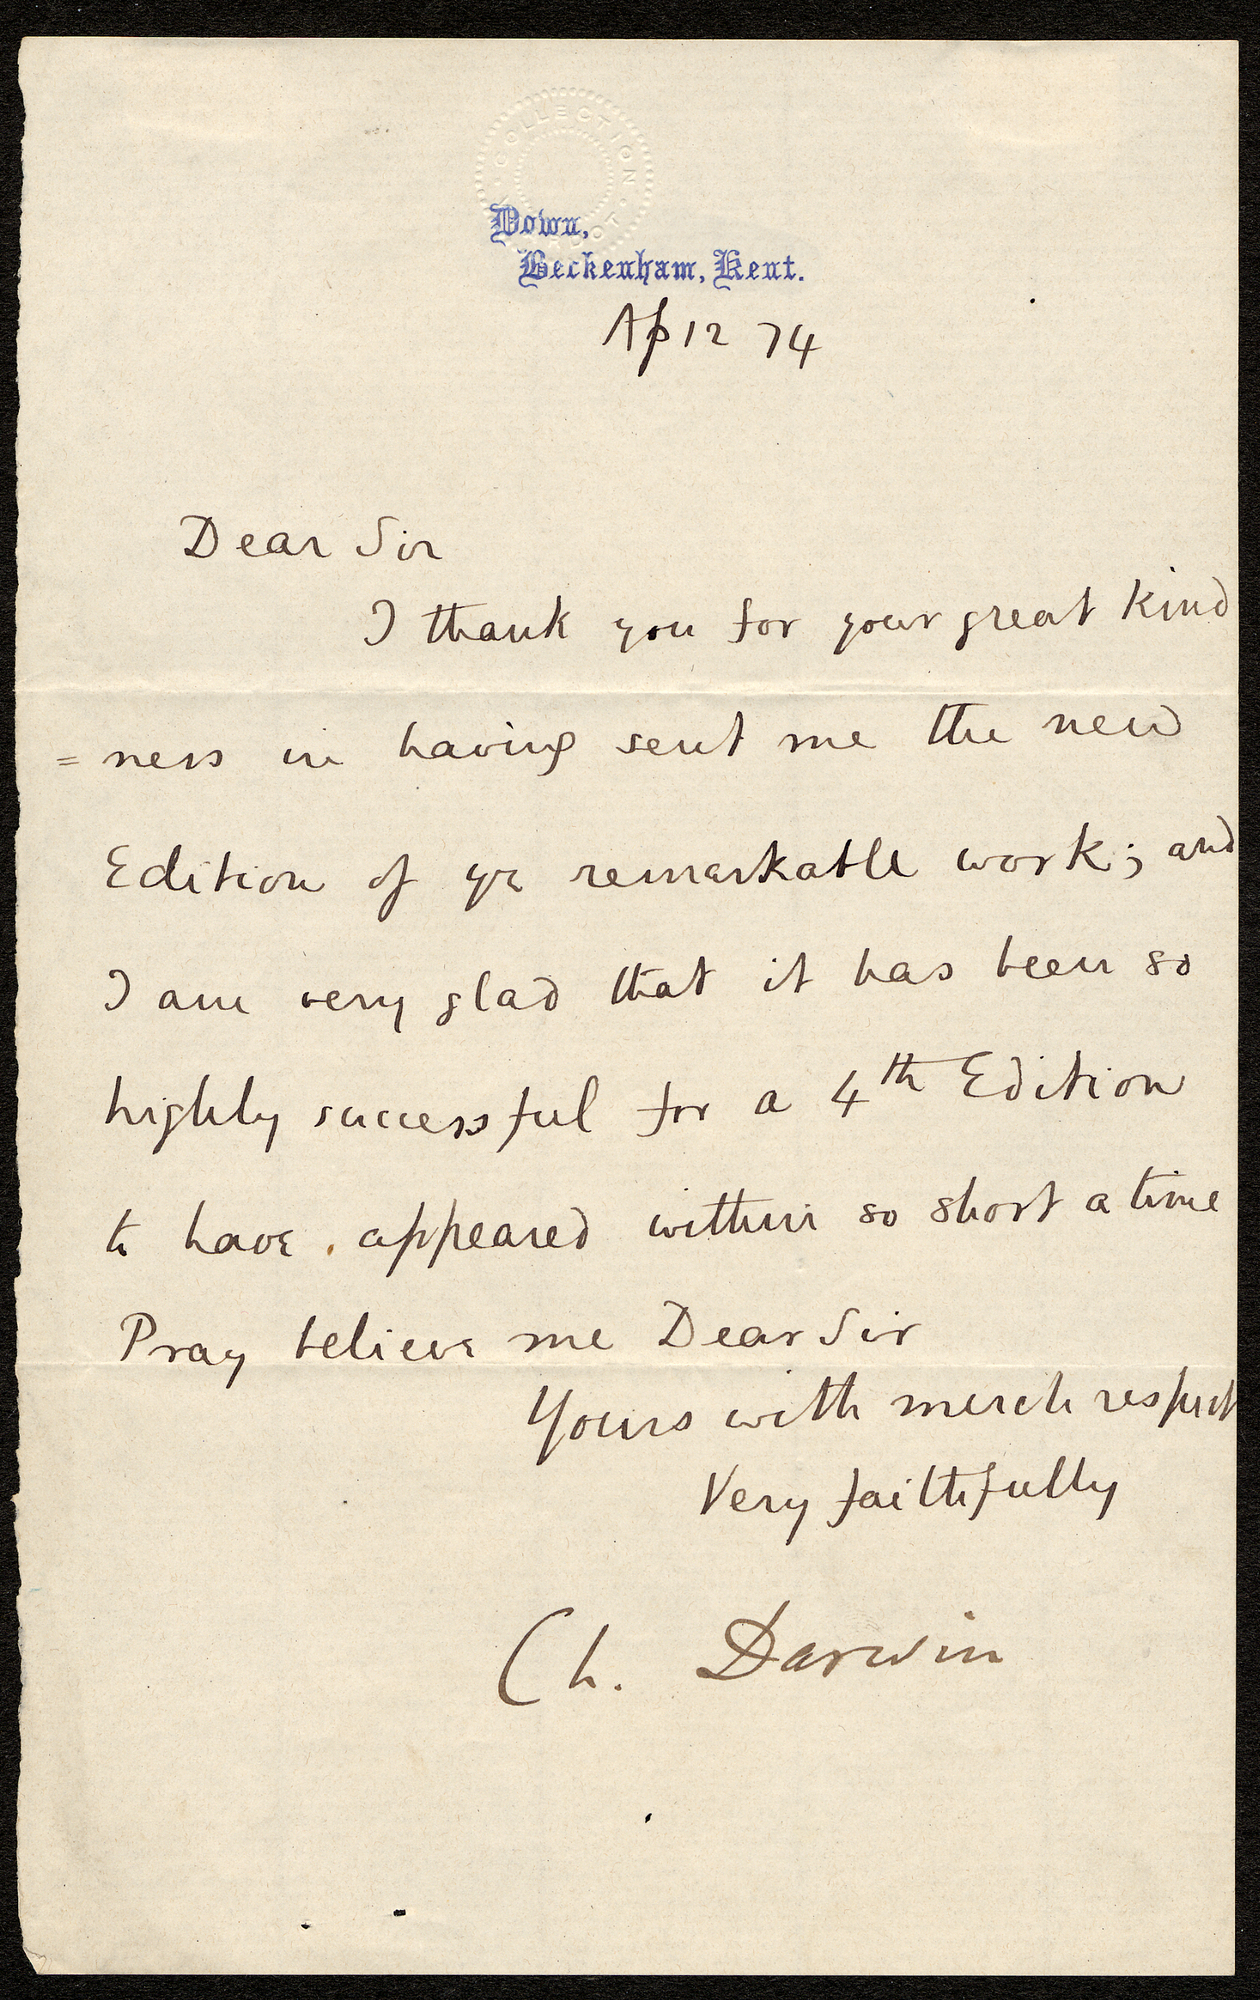 COLLECTION
Down,
Beckenham, Kent.
Ap 12 74
Dear Sir
I thank you for your great kind
=ness in having sent me the new
Edition of yr remarkable work; and
I am very glad that it has been so
highly successful for a 4th Edition
to have appeared within so short a time
Pray believe me Dear Sir
Yours with much respect
Very faithfully
Ch. Darwin